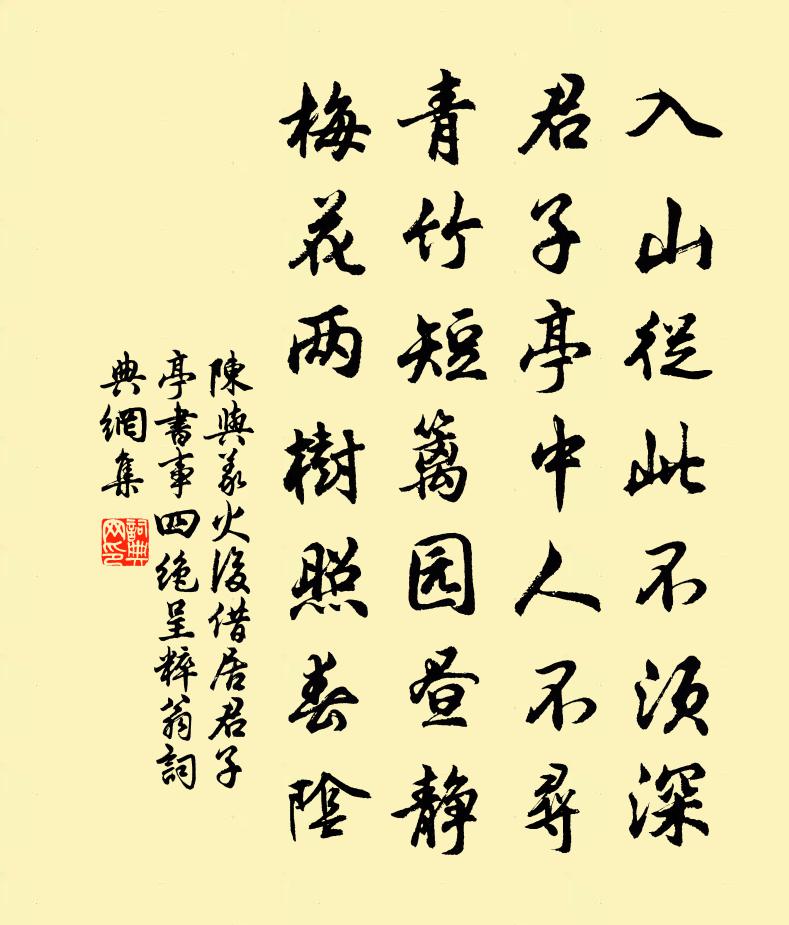 入山從此不须深
君子亭中人不尋
青竹短篱园昼静
梅花两樹照春陰
陳與義火後借居君子
亭書事四絶呈粹翁詞
典網集
詞典
网印